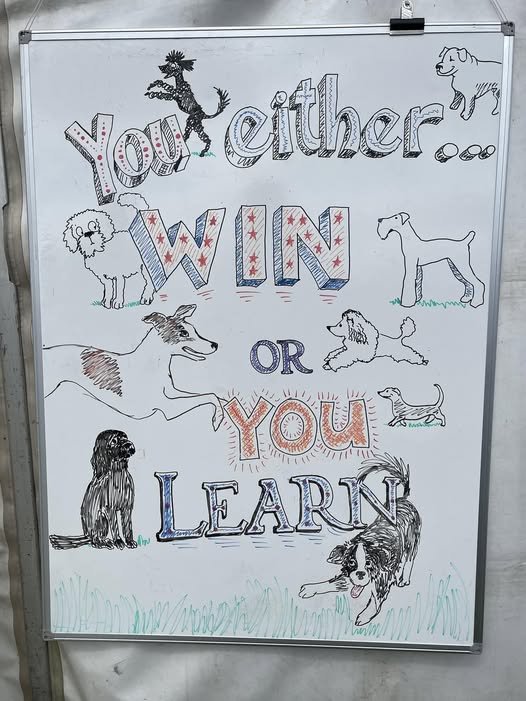 You either...
WIN
OR
YOU
LEARN